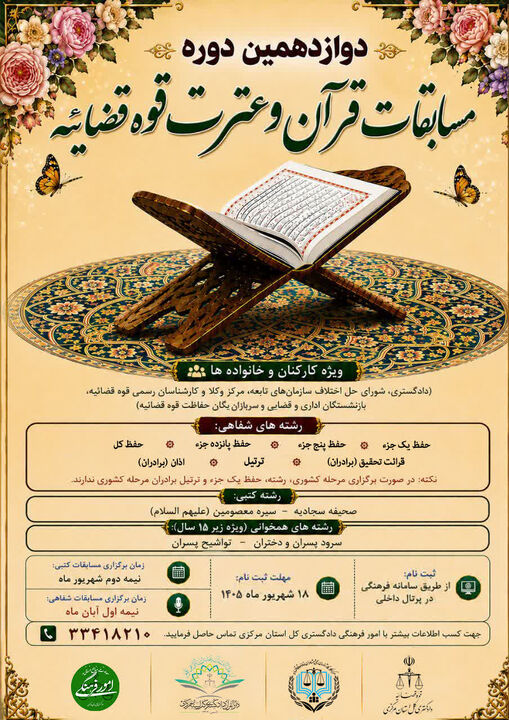 دوازدهمین دوره
مسابقات قرآن و عترت قوه قضائیه
ویژه کارکنان و خانواده ها
(دادگستری، شورای حل اختلاف سازمان‌های تابعه، مرکز وکلا و کارشناسان رسمی قوه قضائیه،
بازنشستگان اداری و قضایی و سربازان یگان حفاظت قوه قضائیه)
رشته های شفاهی:
حفظ یک جزء حفظ پنج جزء حفظ پانزده جزء حفظ کل
قرائت تحقیق (برادران) ترتیل اذان (برادران)
نکته: در صورت برگزاری مرحله کشوری، رشته، حفظ یک جزء و ترتیل برادران مرحله کشوری ندارند.
رشته کتبی:
صحیفه سجادیه - سیره معصومین (علیهم السلام)
رشته های همخوانی (ویژه زیر ۱۵ سال):
سرود پسران و دختران - تواشیح پسران
ثبت نام:
از طریق سامانه فرهنگی
در پرتال داخلی
مهلت ثبت نام:
۱۸ شهریور ماه ۱۴۰۵
زمان برگزاری مسابقات کتبی:
نیمه دوم شهریور ماه
زمان برگزاری مسابقات شفاهی:
نیمه اول آبان ماه
جهت کسب اطلاعات بیشتر با امور فرهنگی دادگستری کل استان مرکزی تماس حاصل فرمایید.
۳۳۴۱۸۲۱۰
قوه قضائیه
دادگستری کل استان مرکزی
امور فرهنگی